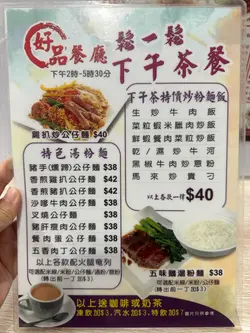 好品餐廳
鬆一鬆
下午茶餐
下午2時-5時30分
雞扒炒公仔麵 $40
下午茶特價炒粉麵飯
生炒牛肉飯
菜粒蝦米臘肉炒飯
鮮蝦餐肉菜粒炒飯
乾/濕炒牛河
黑椒牛肉炒意粉
馬來炒貴刁
以上各款一樣 $40
特色湯粉麵
豬手(燻蹄)公仔麵 $38
香煎雞扒公仔麵 $42
香煎豬扒公仔麵 $38
沙嗲牛肉公仔麵 $38
叉燒公仔麵 $38
豬肝瘦肉公仔麵 $38
餐肉蛋公仔麵 $38
五香肉丁公仔麵 $38
以上各款配火腿奄列
(轉出前一丁加$3)
五味雞湯粉麵 $38
(轉出前一丁加$3)
以上送咖啡或奶茶
凍飲加$3、汽水加$3、特飲加$7